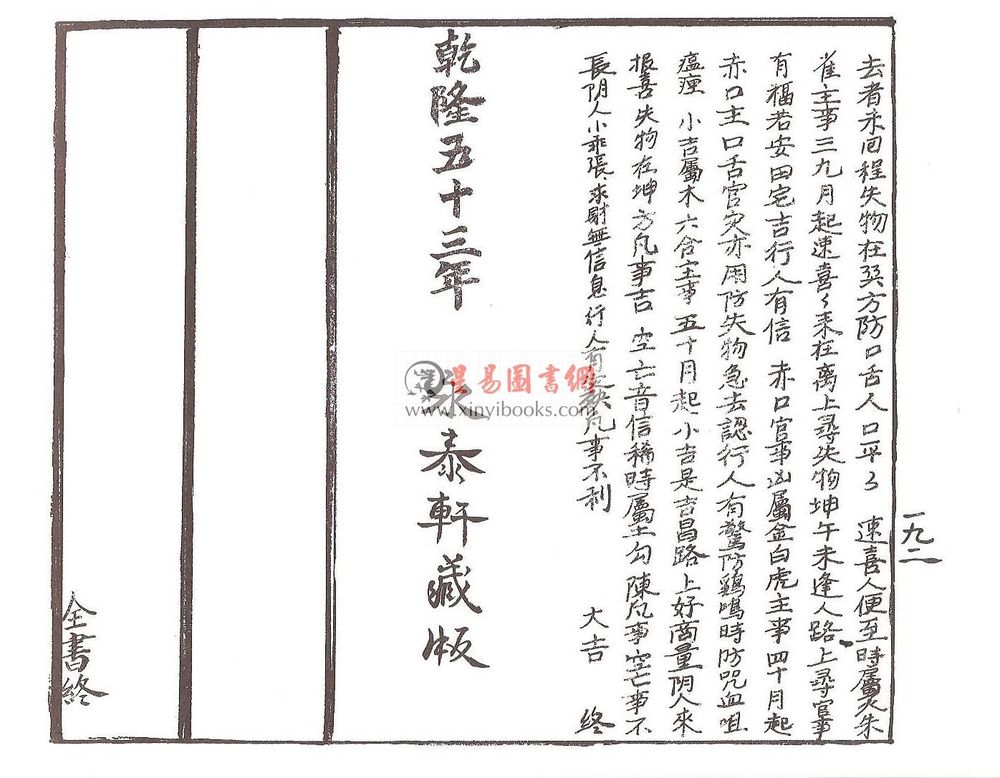 去者未回程失物在巽方防口舌人口平々　速喜人便至時屬火朱
雀主事三九月起速喜々来在离上尋失物坤午未逢人路上尋官事
有福若安田宅吉行人有信　赤口官事凶屬金白虎主事四十月起
赤口主口舌官灾亦用防失物急去認行人有驚防鷄鳴時防咒血咀
瘟　小吉屬木六合主事五十月起小吉是吉昌路上好商量阴人來
报喜失物在坤方凡事吉　空亡音信稀時屬土勾陳凡事空亡事不
長阴人小乖張求財無信息行人有凡事不利　大吉　終
乾隆五十三年　永泰軒藏版
全書終
一九二
星易圖書網
www.xinyibooks.com